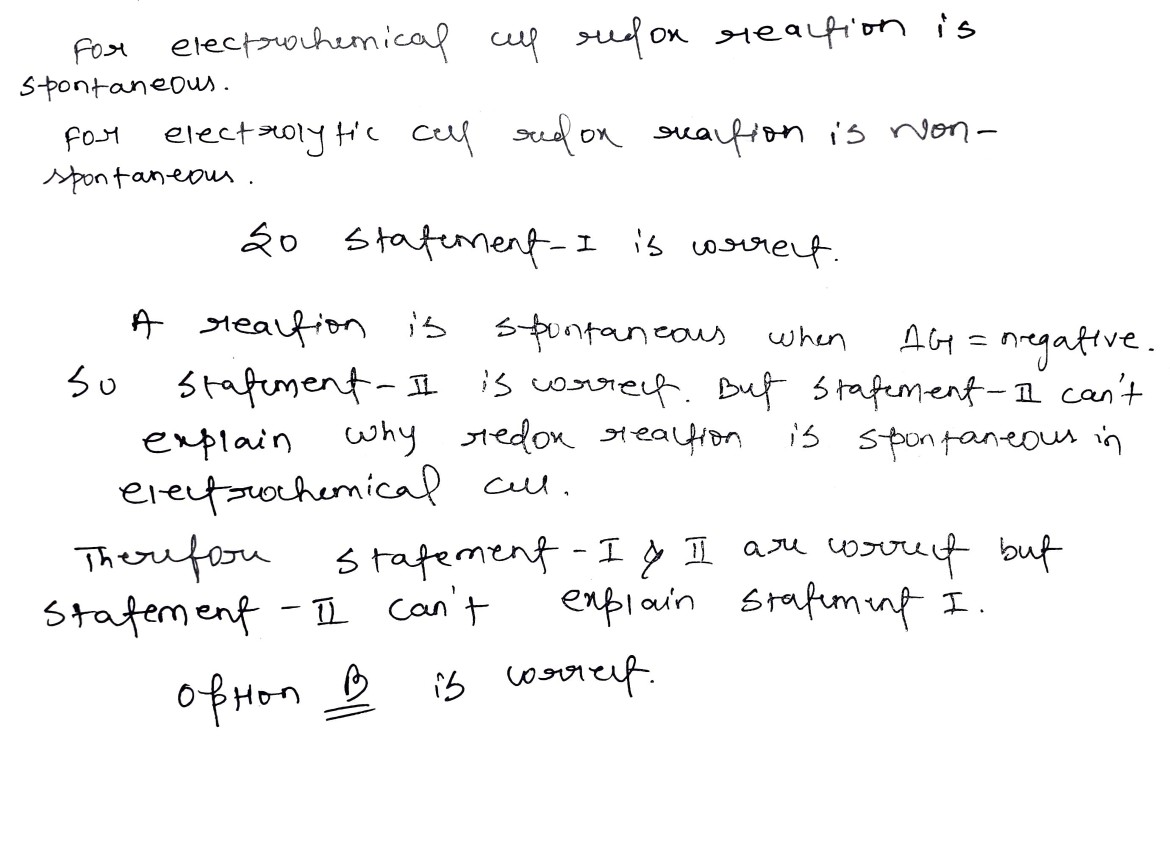 For electrochemical cell redox reaction is
spontaneous.
For electrolytic cell redox reaction is Non-
spontaneous.
So Statement-I is correct.
A reaction is spontaneous when ΔG = negative.
So Statement-II is correct. But Statement-II can't
explain why redox reaction is spontaneous in
electrochemical cell.
Therefore statement-I & II are correct but
Statement-II can't explain Statement I.
Option B is correct.